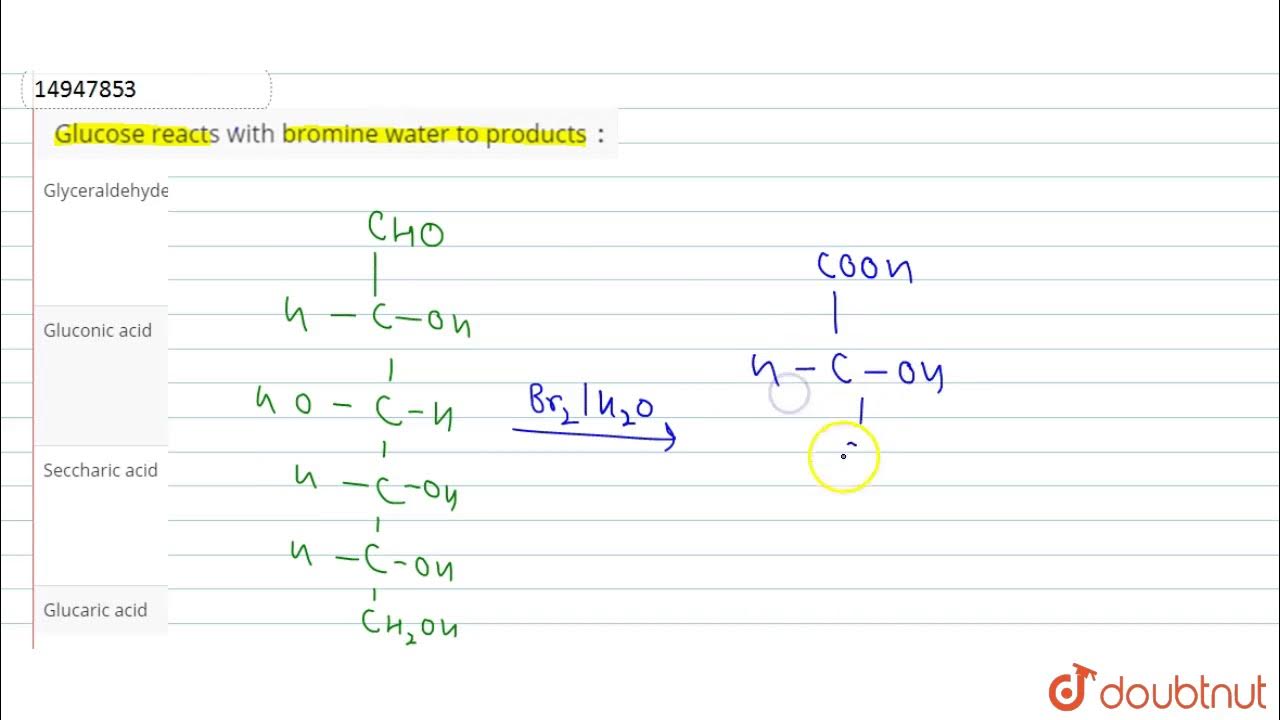 14947853
Glucose reacts with bromine water to products :
Glyceraldehyde
Gluconic acid
Seccharic acid
Glucaric acid
CHO
H - C - OH
HO - C - H
H - C - OH
H - C - OH
CH₂OH
Br₂ | H₂O
COOH
H - C - OH
doubtnut